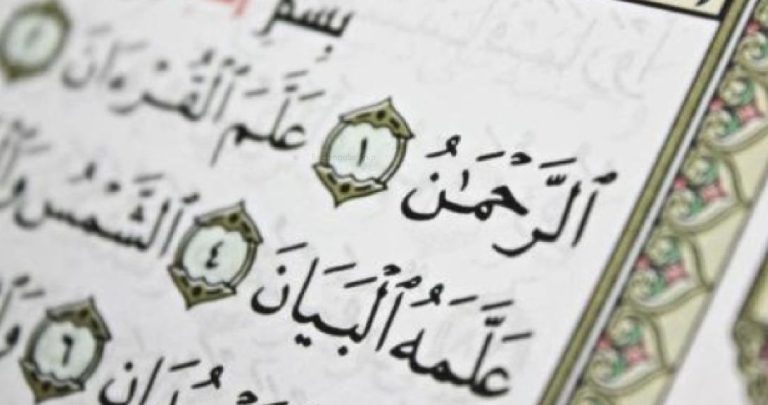 بِسْمِ
ٱلرَّحْمَـٰنُ ١ عَلَّمَ ٱلْقُرْءَانَ ٢
عَلَّمَهُ ٱلْبَيَانَ ٤ ٱلشَّمْسُ
٦